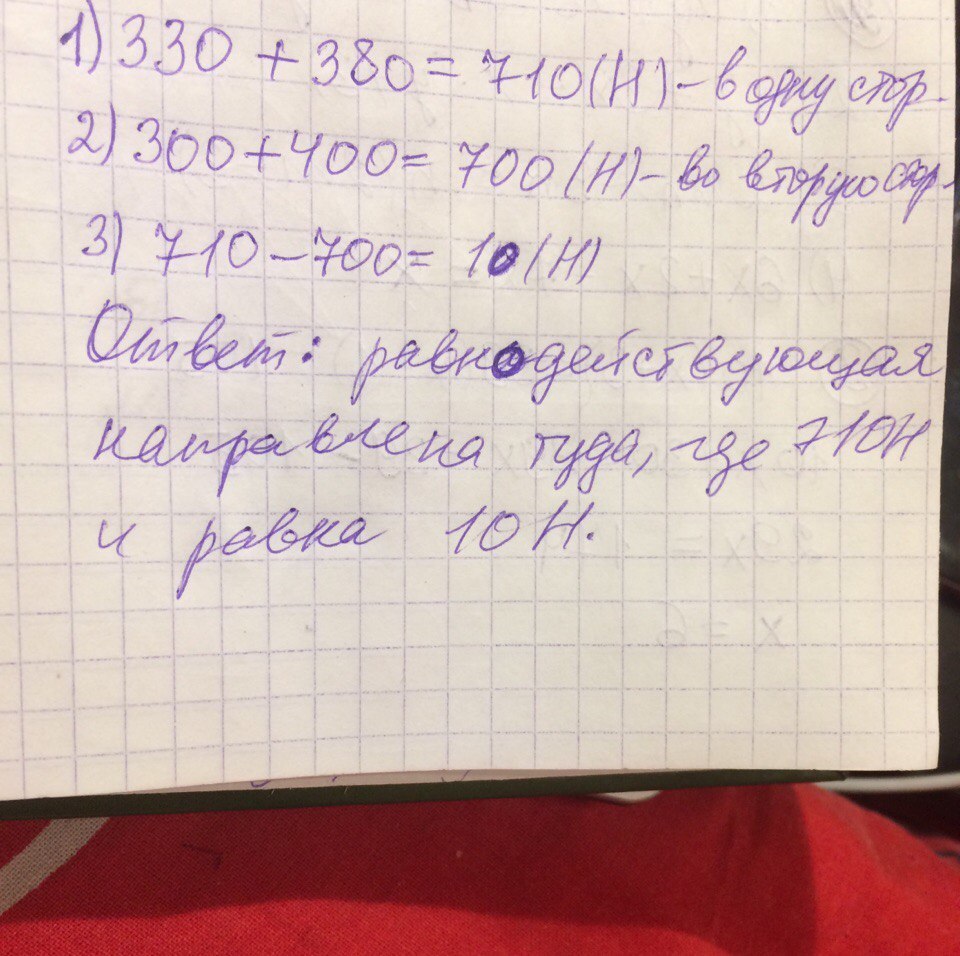 1) 330 + 380 = 710 (Н) - в одну стор.
2) 300 + 400 = 700 (Н) - во вторую стор.
3) 710 - 700 = 10 (Н)
Ответ: равнодействующая
направлена туда, где 710Н
и равна 10 Н.
x = 6